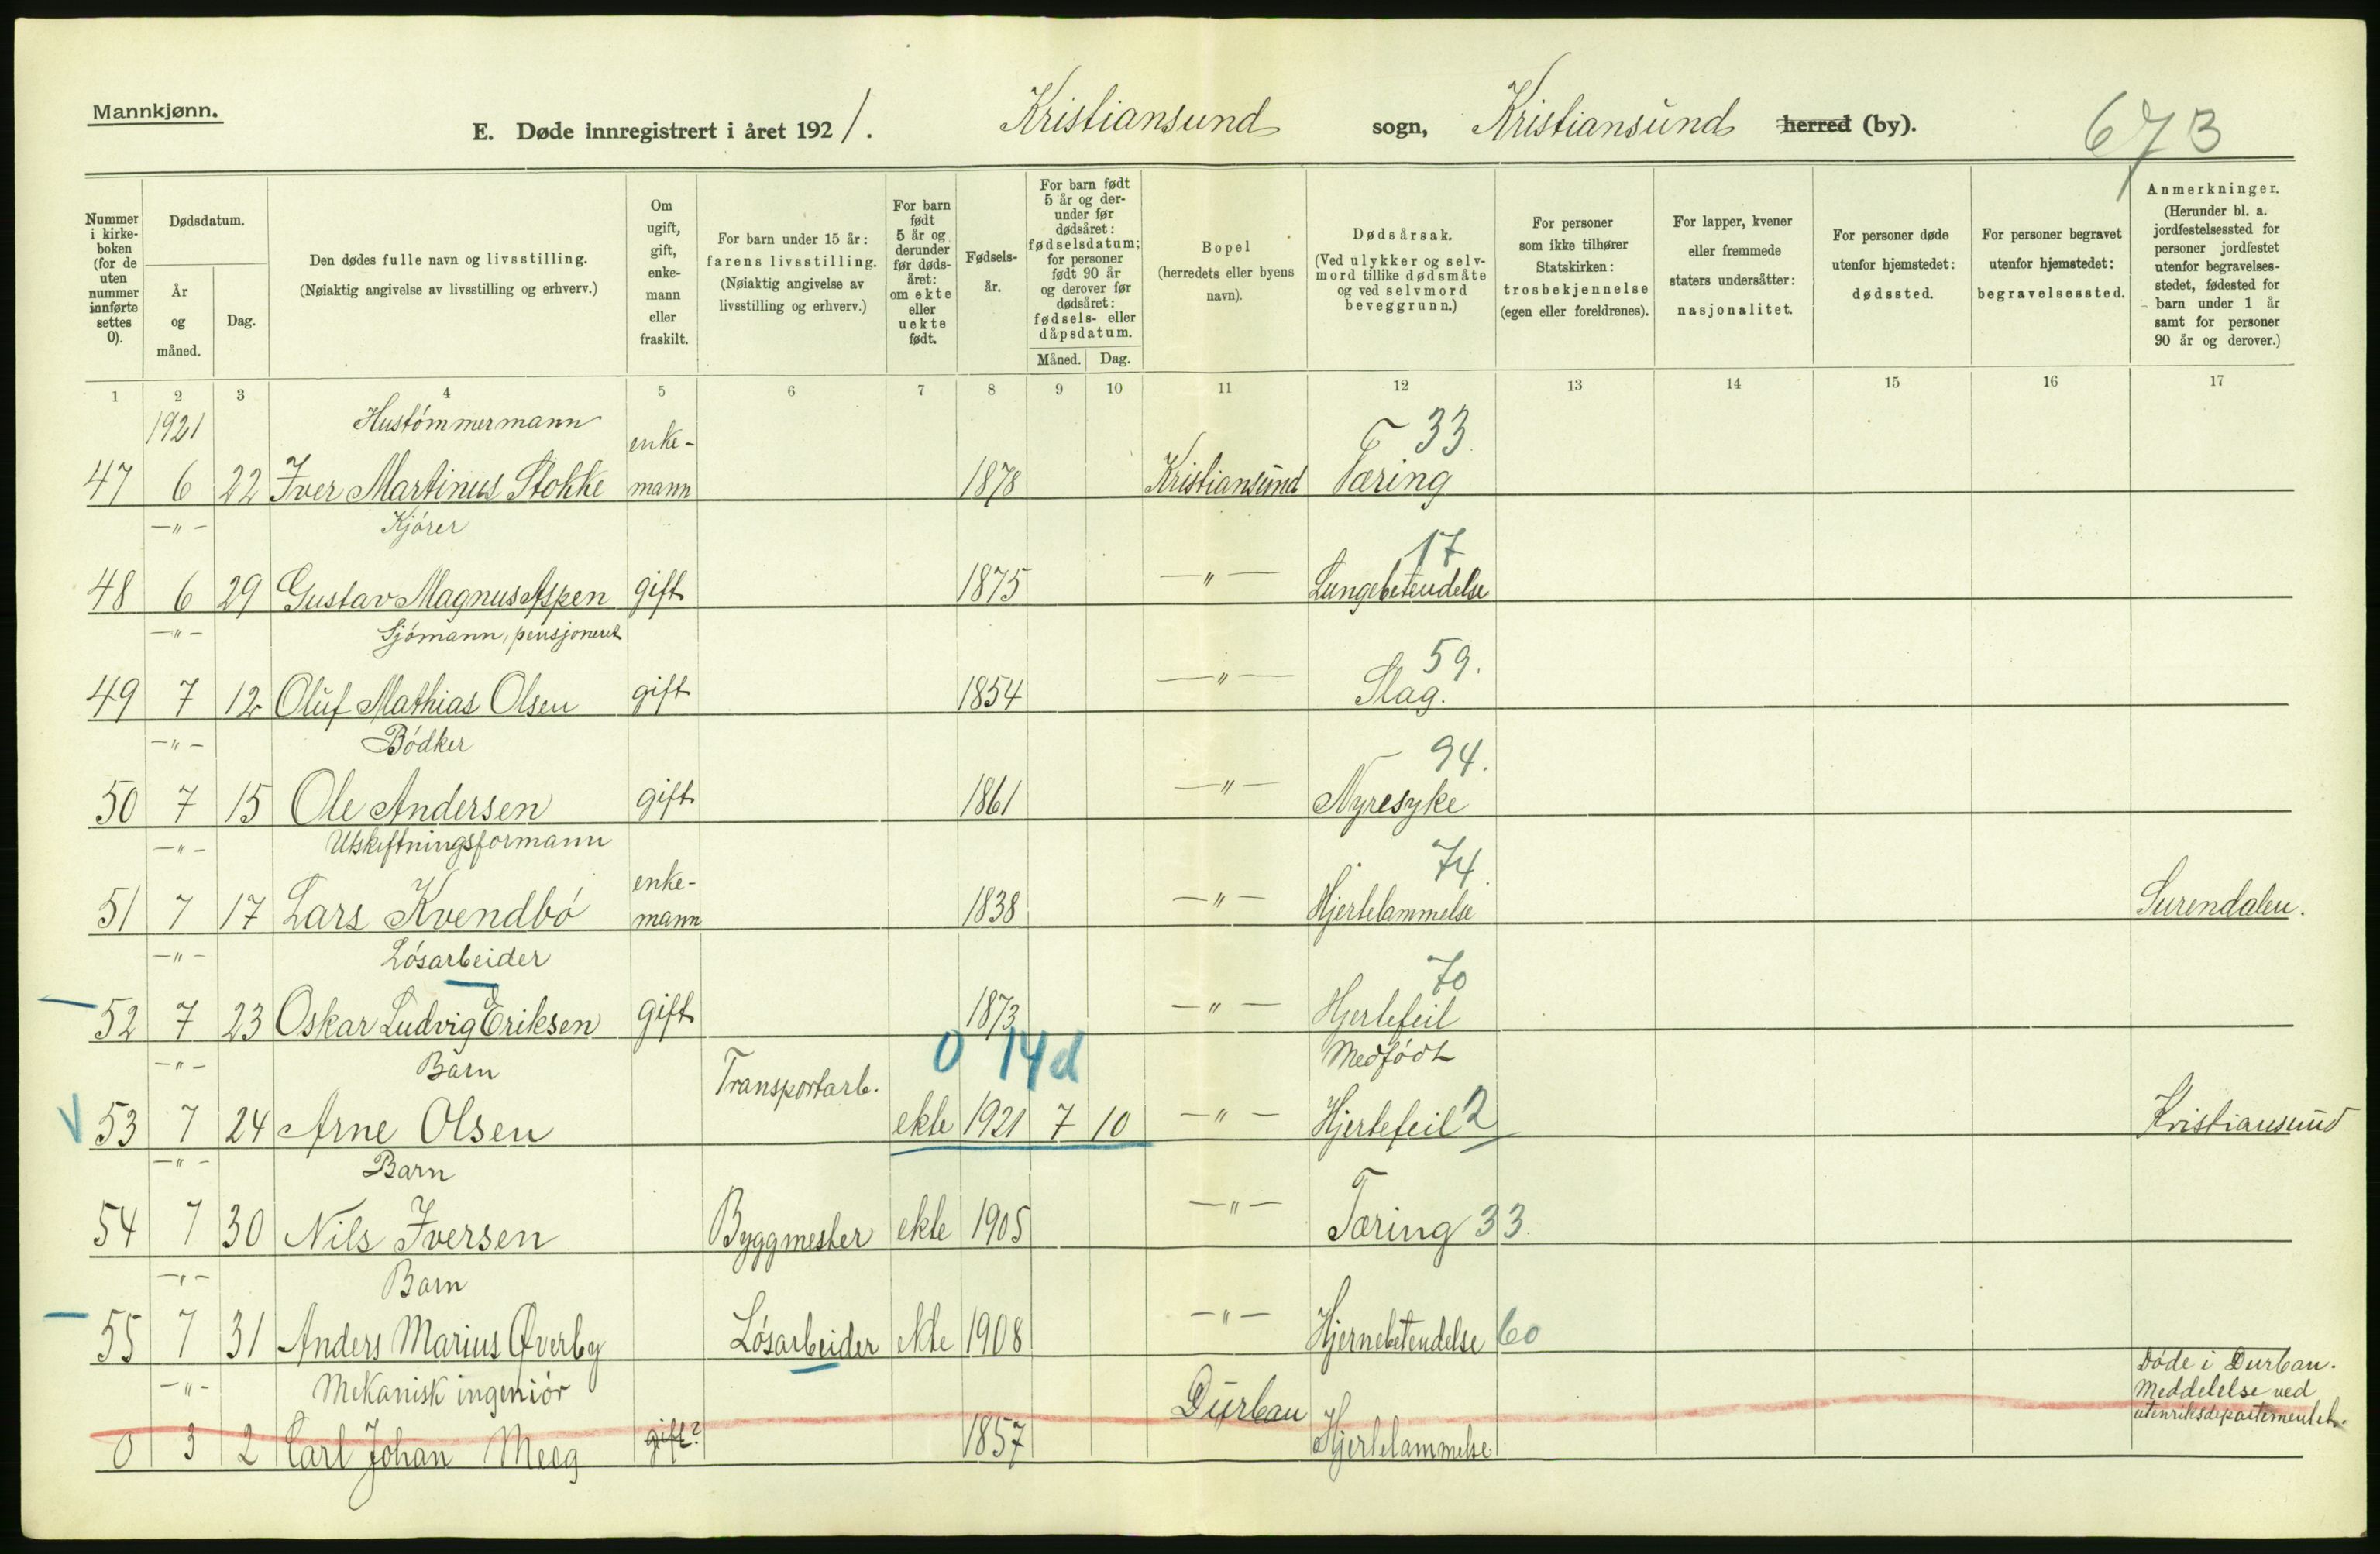 Mannkjønn.
E. Døde innregistrert i året 1921. Kristiansund sogn, Kristiansund herred (by). 673
Nummer i kirkeboken (for de uten nummer innførte settes 0).
Dødsdatum.
År og måned.
Dag.
Den dødes fulle navn og livsstilling.
(Nøiaktig angivelse av livsstilling og erhverv.)
Om ugift, gift, enkemann eller fraskilt.
For barn under 15 år: farens livsstilling.
(Nøiaktig angivelse av livsstilling og erhverv.)
For barn født 5 år og derunder før dødsåret: om ekte eller uekte født.
Fødselsår.
For barn født 5 år og derunder før dødsåret: fødselsdatum; for personer født 90 år og derover før dødsåret: fødsels- eller dåpsdatum.
Måned. Dag.
Bopel
(herredets eller byens navn).
Dødsårsak.
(Ved ulykker og selvmord tillike dødsmåte og ved selvmord beveggrunn.)
For personer som ikke tilhører Statskirken: trosbekjennelse (egen eller foreldrenes).
For lapper, kvener eller fremmede staters undersåtter: nasjonalitet.
For personer døde utenfor hjemstedet: dødssted.
For personer begravet utenfor hjemstedet: begravelsessted.
Anmerkninger.
(Herunder bl. a. jordfestelsessted for personer jordfestet utenfor begravelsesstedet, fødested for barn under 1 år samt for personer 90 år og derover.)
1 2 3 4 5 6 7 8 9 10 11 12 13 14 15 16 17
1921 Hustömmermann enke- T 33
47 6 22 Iver Martinus Stokke mann 1878 Kristiansund Tæring
—"— Kjörer 17
48 6 29 Gustav Magnus Aspen gift 1875 —"— Lungebetendelse
—"— Sjömann, pensjonert 59.
49 7 12 Oluf Mathias Olsen gift 1854 —"— Slag.
—"— Bödker 94.
50 7 15 Ole Andersen gift 1861 —"— Nyresyke
—"— Utskiftningsformann enke- 74.
51 7 17 Lars Kvendbö mann 1838 —"— Hjertelammelse Surendalen.
—"— Lösarbeider 70
52 7 23 Oskar Ludvig Eriksen gift 1873 —"— Hjertefeil
—"— Barn Transportarb. 0 14d Medfödt
53 7 24 Arne Olsen ekte 1921 7 10 —"— Hjertefeil 2 Kristiansund
—"— Barn
54 7 30 Nils Iversen Byggmester ekte 1905 —"— Tæring 33.
—"— Barn
55 7 31 Anders Marius Øverby Lösarbeider ekte 1908 —"— Hjernebetendelse 60
—"— Mekanisk ingeniör Döde i Durban. Meddelelse ved utenriksdepartementet.
0 3 2 Carl Johan Meeg gift? 1857 Durban Hjertelammelse